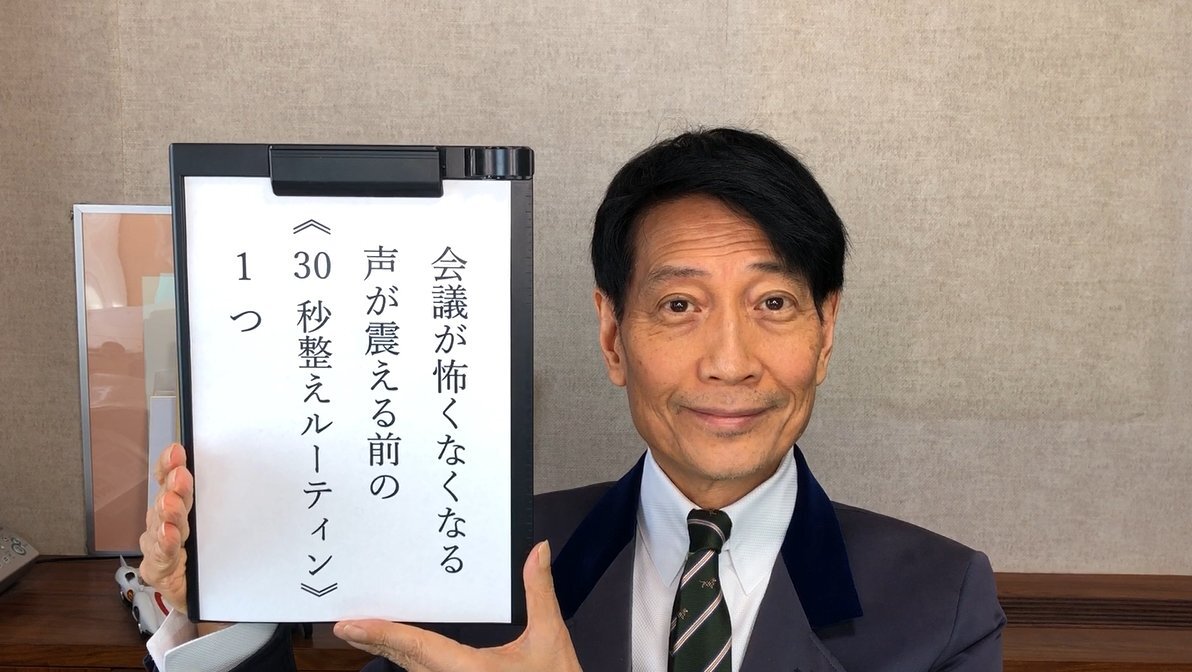 会議が怖くなくなる
声が震える前の
《30秒整えルーティン》
1つ